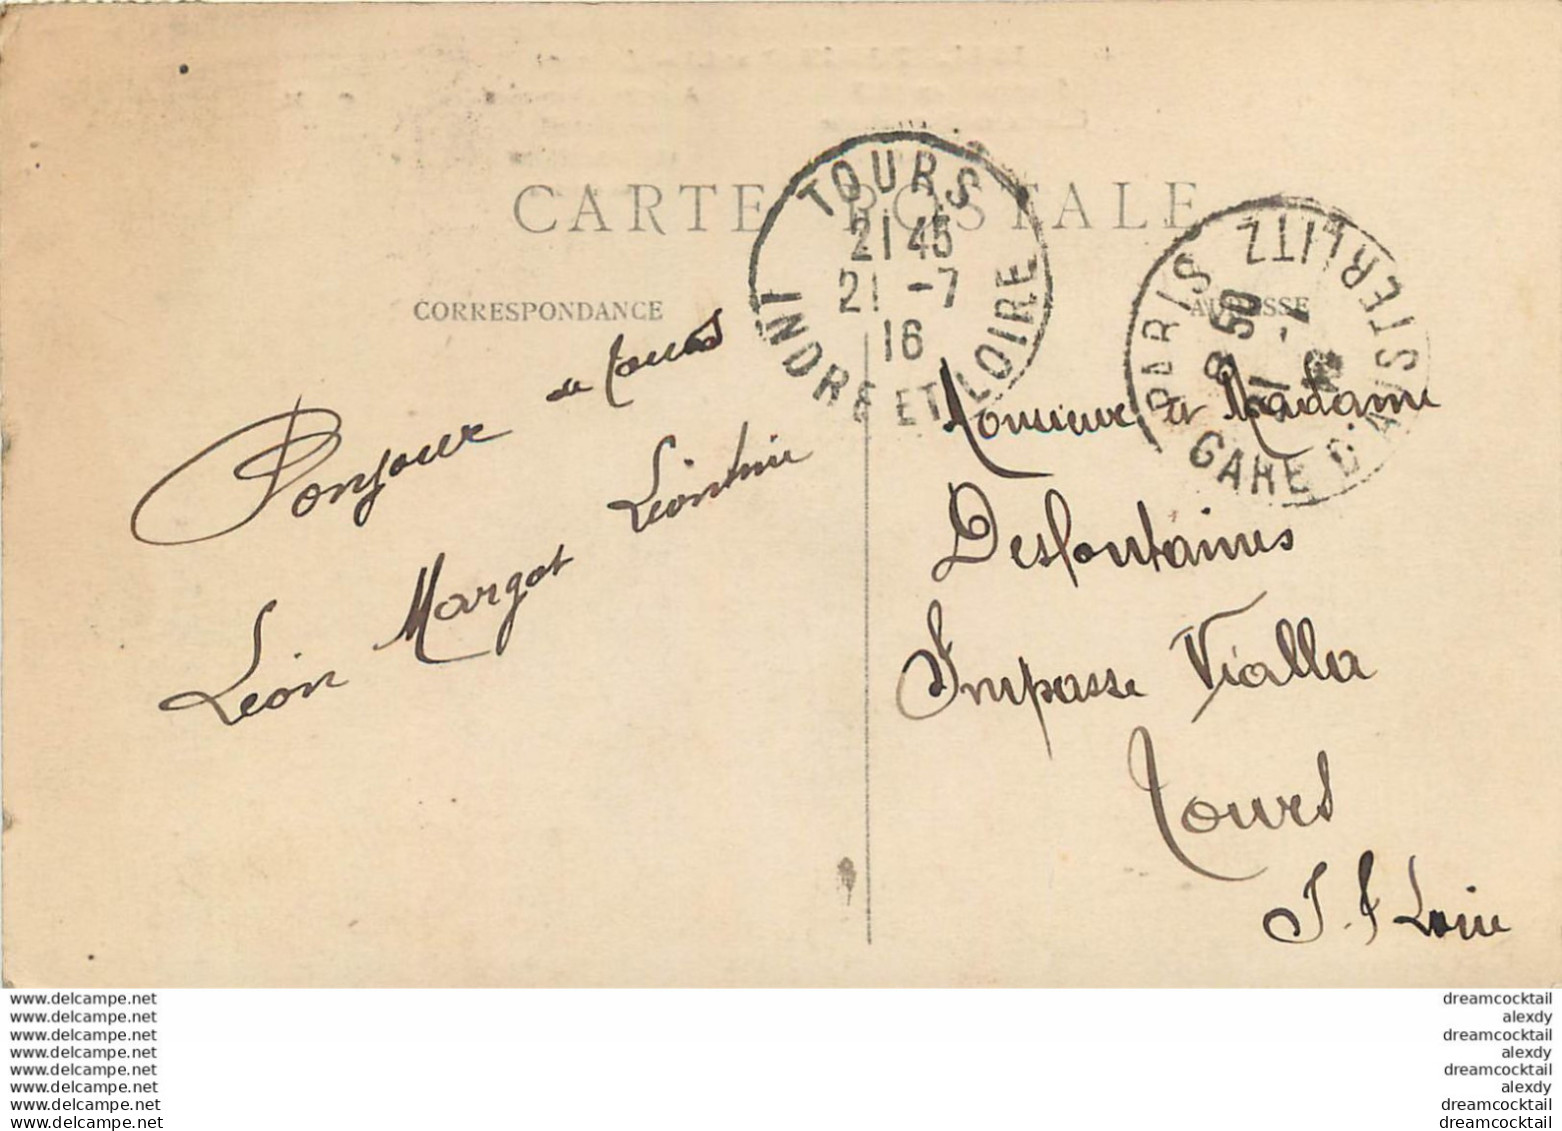 CARTE POSTALE
CORRESPONDANCE
ADRESSE
TOURS
21 45
21 -7
16
INDRE ET LOIRE
PARIS
8 50
21 -7
GARE D'AUSTERLITZ
Bonjour de tous
Léon Margot Léontine
Monsieur et Madame
Desfontaines
Impasse Vialla
Tours
I. & Loire
www.delcampe.net
www.delcampe.net
www.delcampe.net
www.delcampe.net
www.delcampe.net
www.delcampe.net
www.delcampe.net
www.delcampe.net
dreamcocktail
alexdy
dreamcocktail
alexdy
dreamcocktail
alexdy
dreamcocktail
dreamcocktail